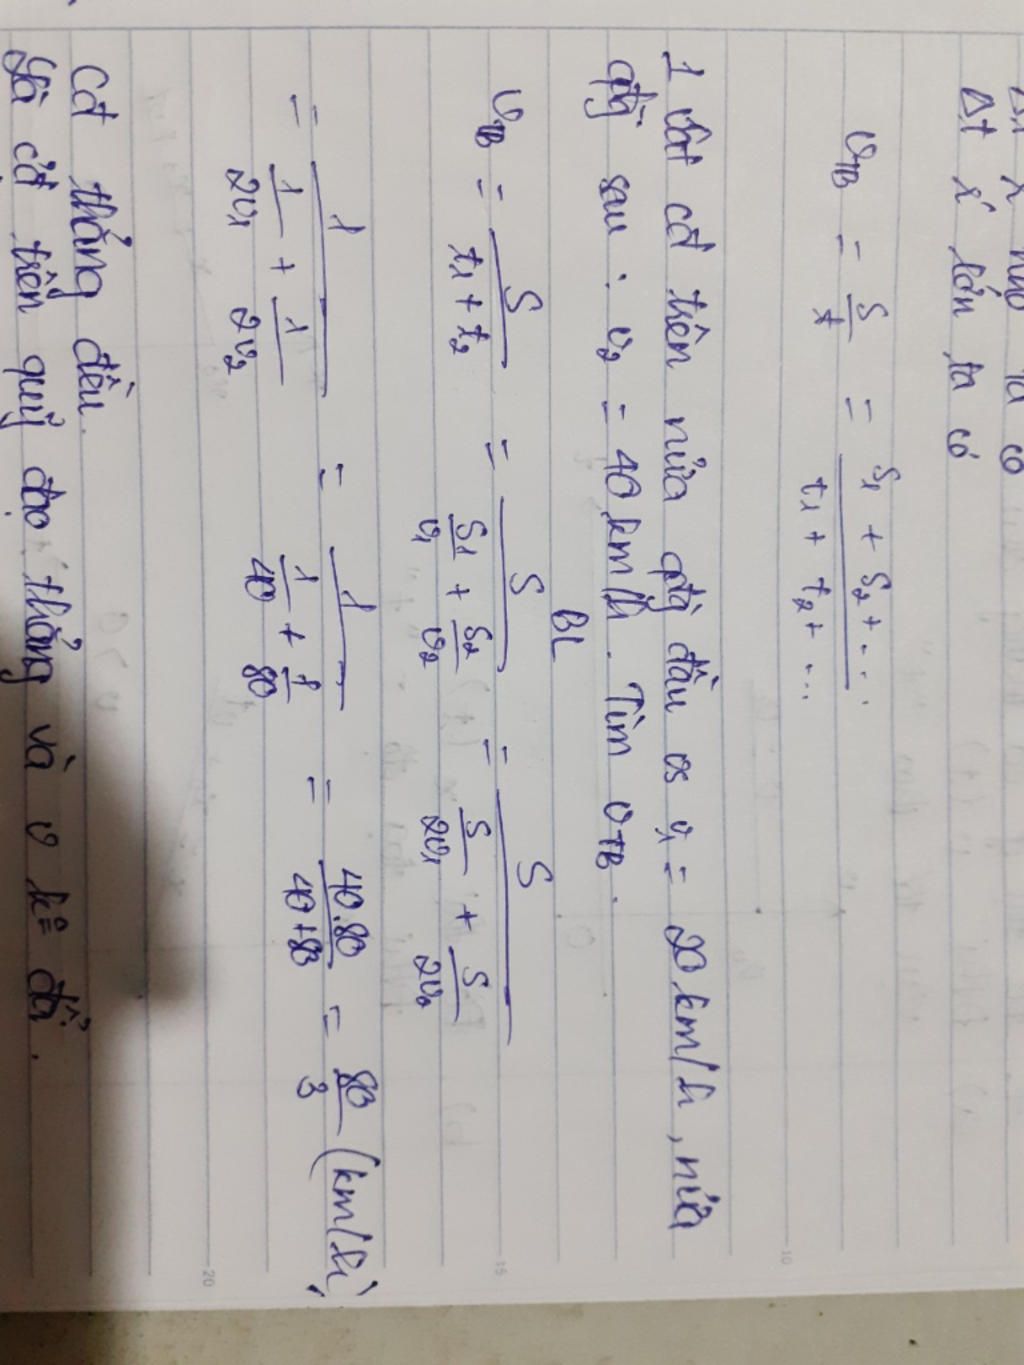 Δt x' nhỏ ta có
Δt x' lớn ta có
v_TB = S/t = (S₁ + S₂ + ...)/(t₁ + t₂ + ...)
1 vật cđ trên nửa qđg đầu vs v₁ = 20 km/h, nửa
qđg sau : v₂ = 40 km/h. Tìm v_TB.
BL
v_TB = S/(t₁ + t₂) = S/(S₁/v₁ + S₂/v₂) = S/(S/2v₁ + S/2v₂)
= 1/(1/2v₁ + 1/2v₂) = 1/(1/40 + 1/80) = 40.80/(40+80) = 80/3 (km/h)
Cđ thẳng đều.
Là cđ trên quỹ đạo thẳng và v k° đổi.
10
15
20